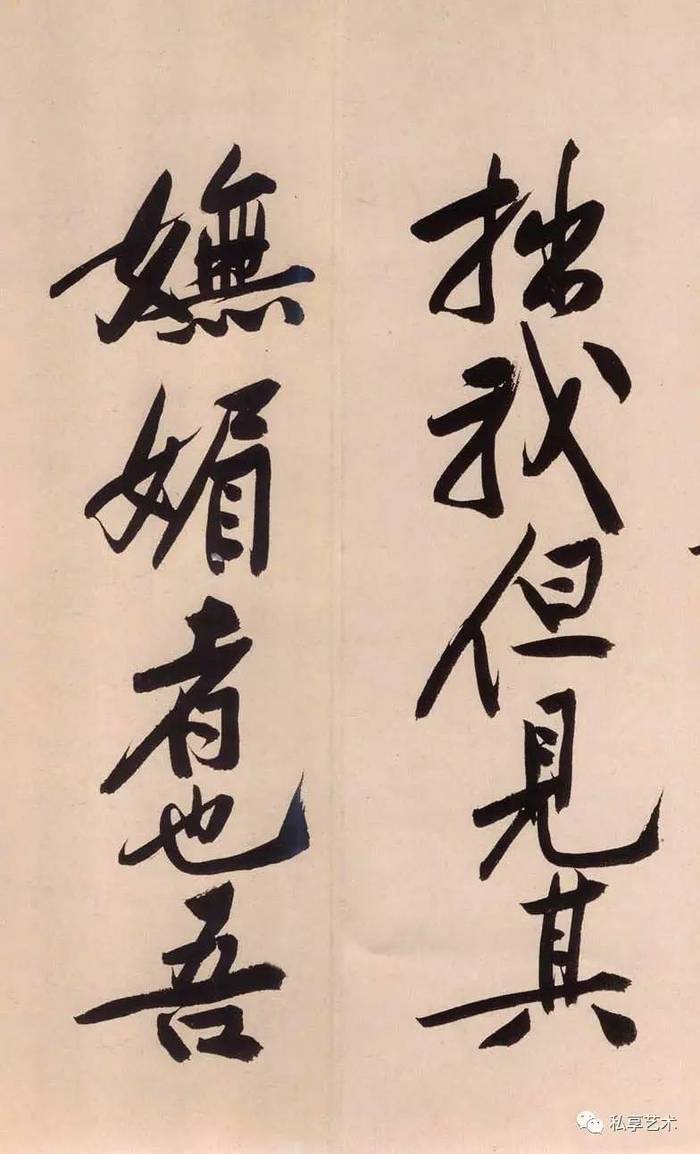 拙我但见其
嫵媚者也吾
私享艺术